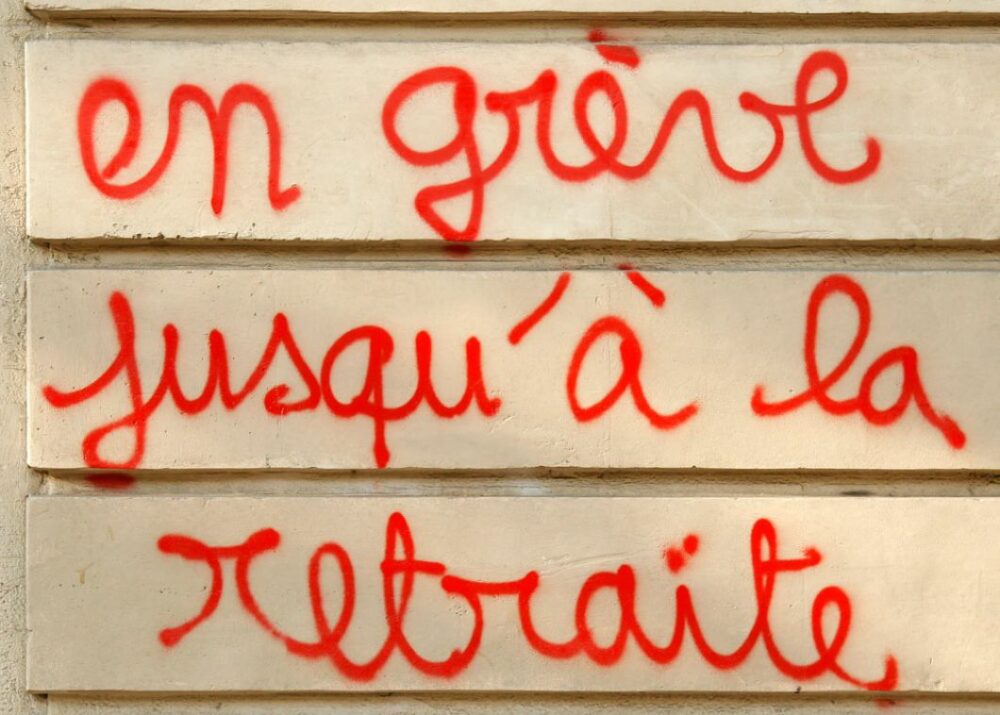 en grève
jusqu'à la
retraite